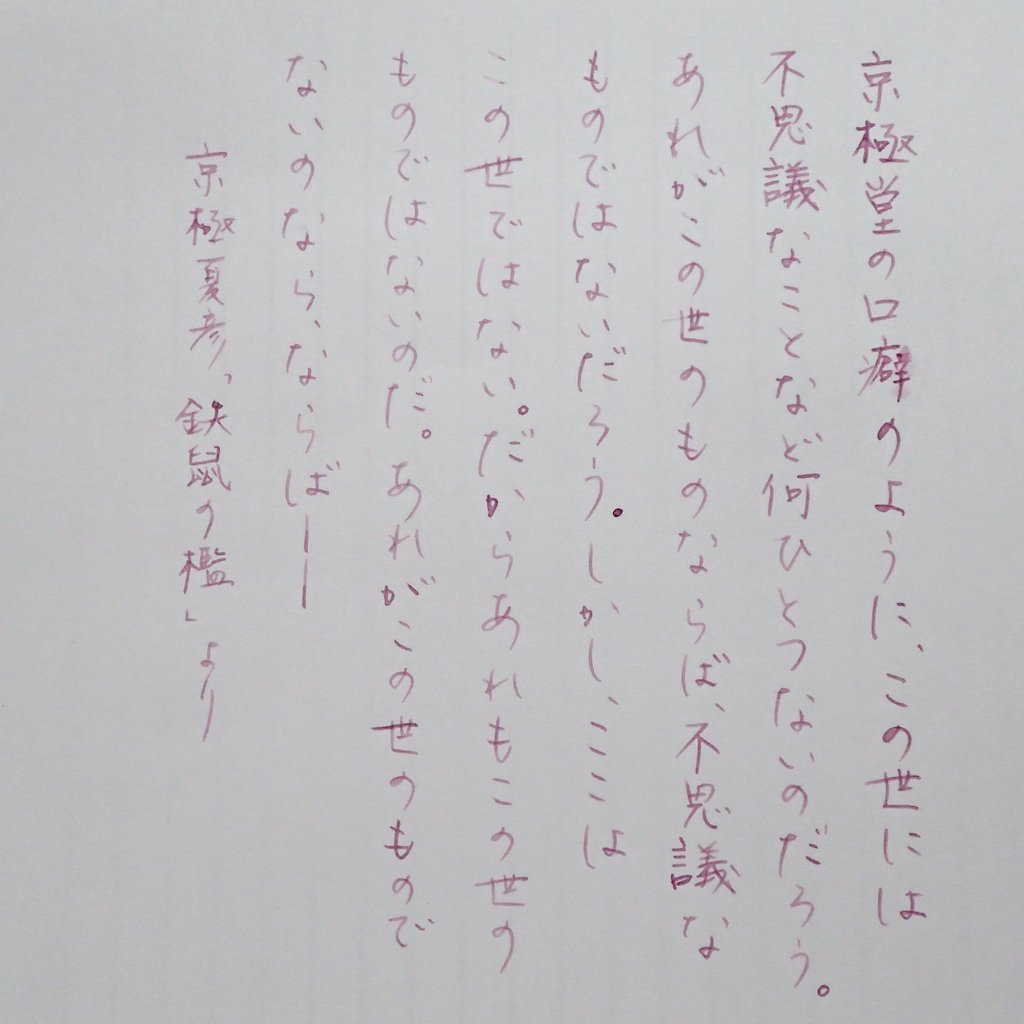 京極堂の口癖のように、この世には
不思議なことなど何ひとつないのだろう。
あれがこの世のものならば、不思議な
ものではないだろう。しかし、ここは
この世ではない。だからあれもこの世の
ものではないのだ。あれがこの世のもので
ないのなら、ならば――
京極夏彦「鉄鼠の檻」より